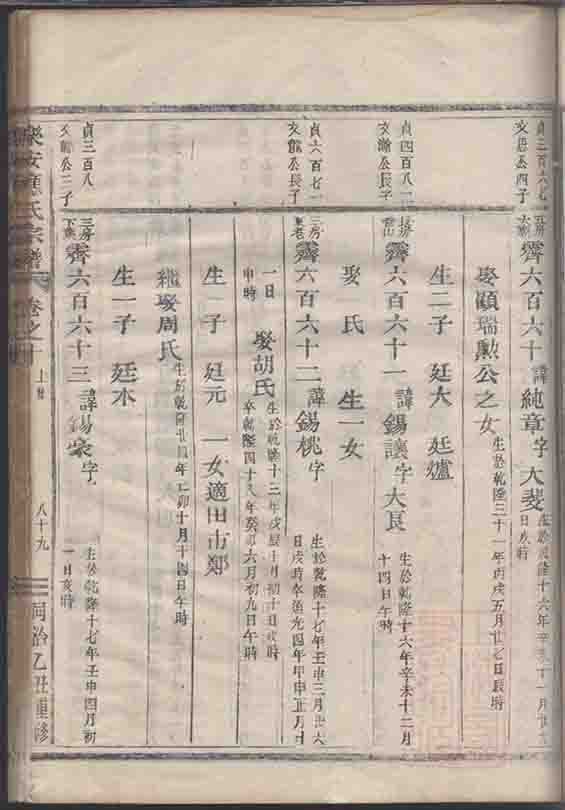 貞三百六七
文思公四子
五房
齊六百六十諱純章字大斐
生於乾隆十六年辛未十一月廿
日亥時
娶顧瑞勲公之女
生於乾隆三十一年丙戌五月廿七日辰時
生二子 廷大 廷爐
貞四百八一
文瀚公長子
長房
齊六百六十一諱錫讓字大良
生於乾隆十六年辛未十二月
十四日午時
娶 氏 生一女
貞六百七一
文龍公長子
三房
齊六百六十二諱錫桃字
生於乾隆十七年壬申三月廿六
日戌時卒道光四年甲申正月廿
一日
申時
娶胡氏
生於乾隆十三年戊辰十月初十日亥時
卒乾隆四十八年癸卯六月初九日午時
生一子 廷元 一女適田市鄭
繼娶周氏
生於乾隆廿四年己卯十月十四日午時
生一子 廷木
貞三百八
文瀚公二子
三房
齊六百六十三諱錫豪字
生於乾隆十七年壬申四月初
一日亥時
樂安應氏宗譜 卷之十 上 八十九 同治乙丑重修